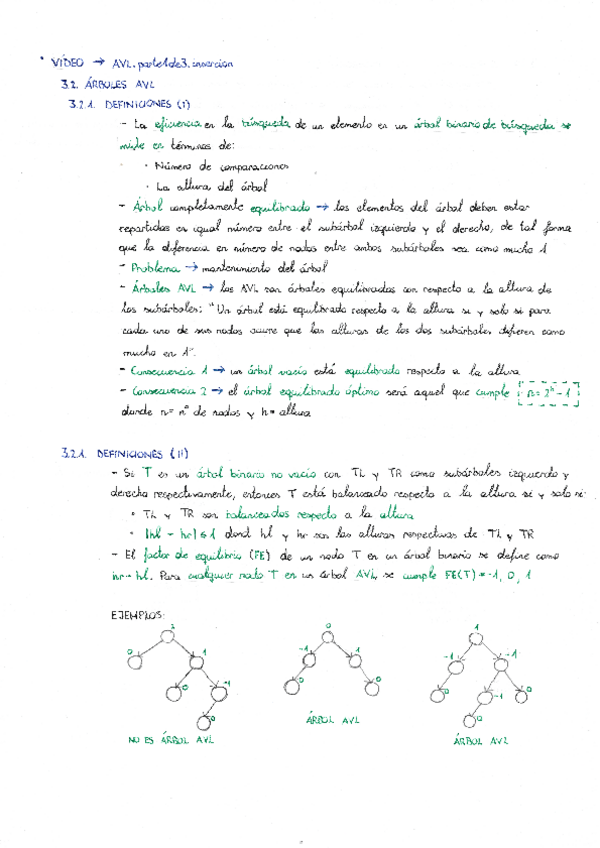 • VÍDEO → AVL.parte1de3.insercion
3.2. ÁRBOLES AVL
3.2.1. DEFINICIONES (I)
- La eficiencia en la búsqueda de un elemento en un árbol binario de búsqueda se
mide en términos de:
· Número de comparaciones
· La altura del árbol
- Árbol completamente equilibrado → los elementos del árbol deben estar
repartidos en igual número entre el subárbol izquierdo y el derecho, de tal forma
que la diferencia en número de nodos entre ambos subárboles sea como mucho 1
- Problema → mantenimiento del árbol
- Árboles AVL → los AVL son árboles equilibrados con respecto a la altura de
los subárboles: "Un árbol está equilibrado respecto a la altura si y solo si para
cada uno de sus nodos ocurre que las alturas de los dos subárboles difieren como
mucho en 1".
- Consecuencia 1 → un árbol vacío está equilibrado respecto a la altura
- Consecuencia 2 → el árbol equilibrado óptimo será aquel que cumple n = 2^h - 1
donde n = nº de nodos y h = altura
3.2.1. DEFINICIONES (II)
- Si T es un árbol binario no vacío con TL y TR como subárboles izquierdo y
derecho respectivamente, entonces T está balanceado respecto a la altura si y solo si:
• TL y TR son balanceados respecto a la altura
• |hl - hr| ≤ 1 dond hl y hr son las alturas respectivas de TL y TR
- El factor de equilibrio (FE) de un nodo T en un árbol binario se define como
hr - hl. Para cualquier nodo T en un árbol AVL, se cumple FE(T) = -1, 0, 1
EJEMPLOS:
2 0 1
0 1 -1 1 -1 -1
0 -1 0 0 0 -1 0
0 0
NO ES ÁRBOL AVL
ÁRBOL AVL
ÁRBOL AVL